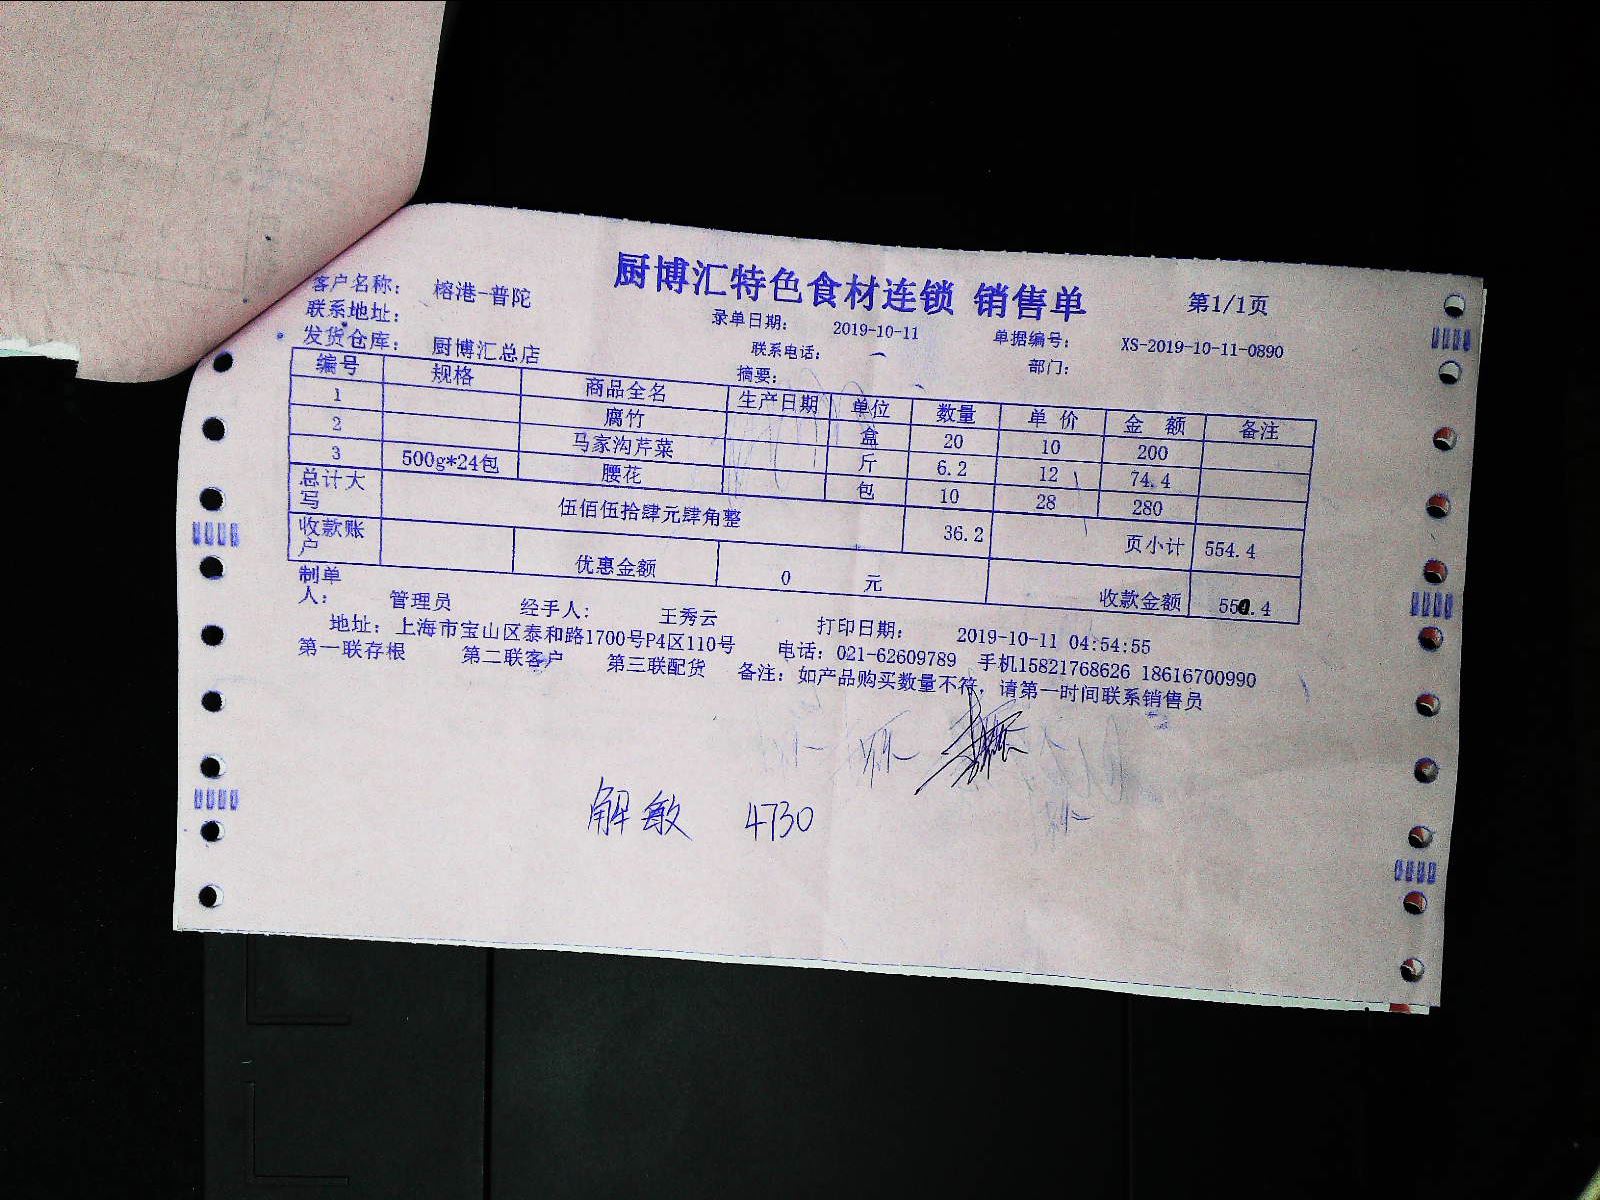 厨博汇特色食材连锁 销售单 第1/1页
客户名称： 榕港-普陀 录单日期： 2019-10-11 单据编号： XS-2019-10-11-0890
联系地址： 联系电话： 部门：
发货仓库： 厨博汇总店 摘要：
编号 规格 商品全名 生产日期 单位 数量 单价 金额 备注
1 腐竹 盒 20 10 200
2 马家沟芹菜 斤 6.2 12 74.4
3 500g*24包 腰花 包 10 28 280
总计大写 伍佰伍拾肆元肆角整 36.2 页小计 554.4
收款账户 优惠金额 0 元 收款金额 550.4
制单人： 管理员 经手人： 王秀云 打印日期： 2019-10-11 04:54:55
地址：上海市宝山区泰和路1700号P4区110号 电话：021-62609789 手机15821768626 18616700990
第一联存根 第二联客户 第三联配货 备注：如产品购买数量不符，请第一时间联系销售员
解敏 4730